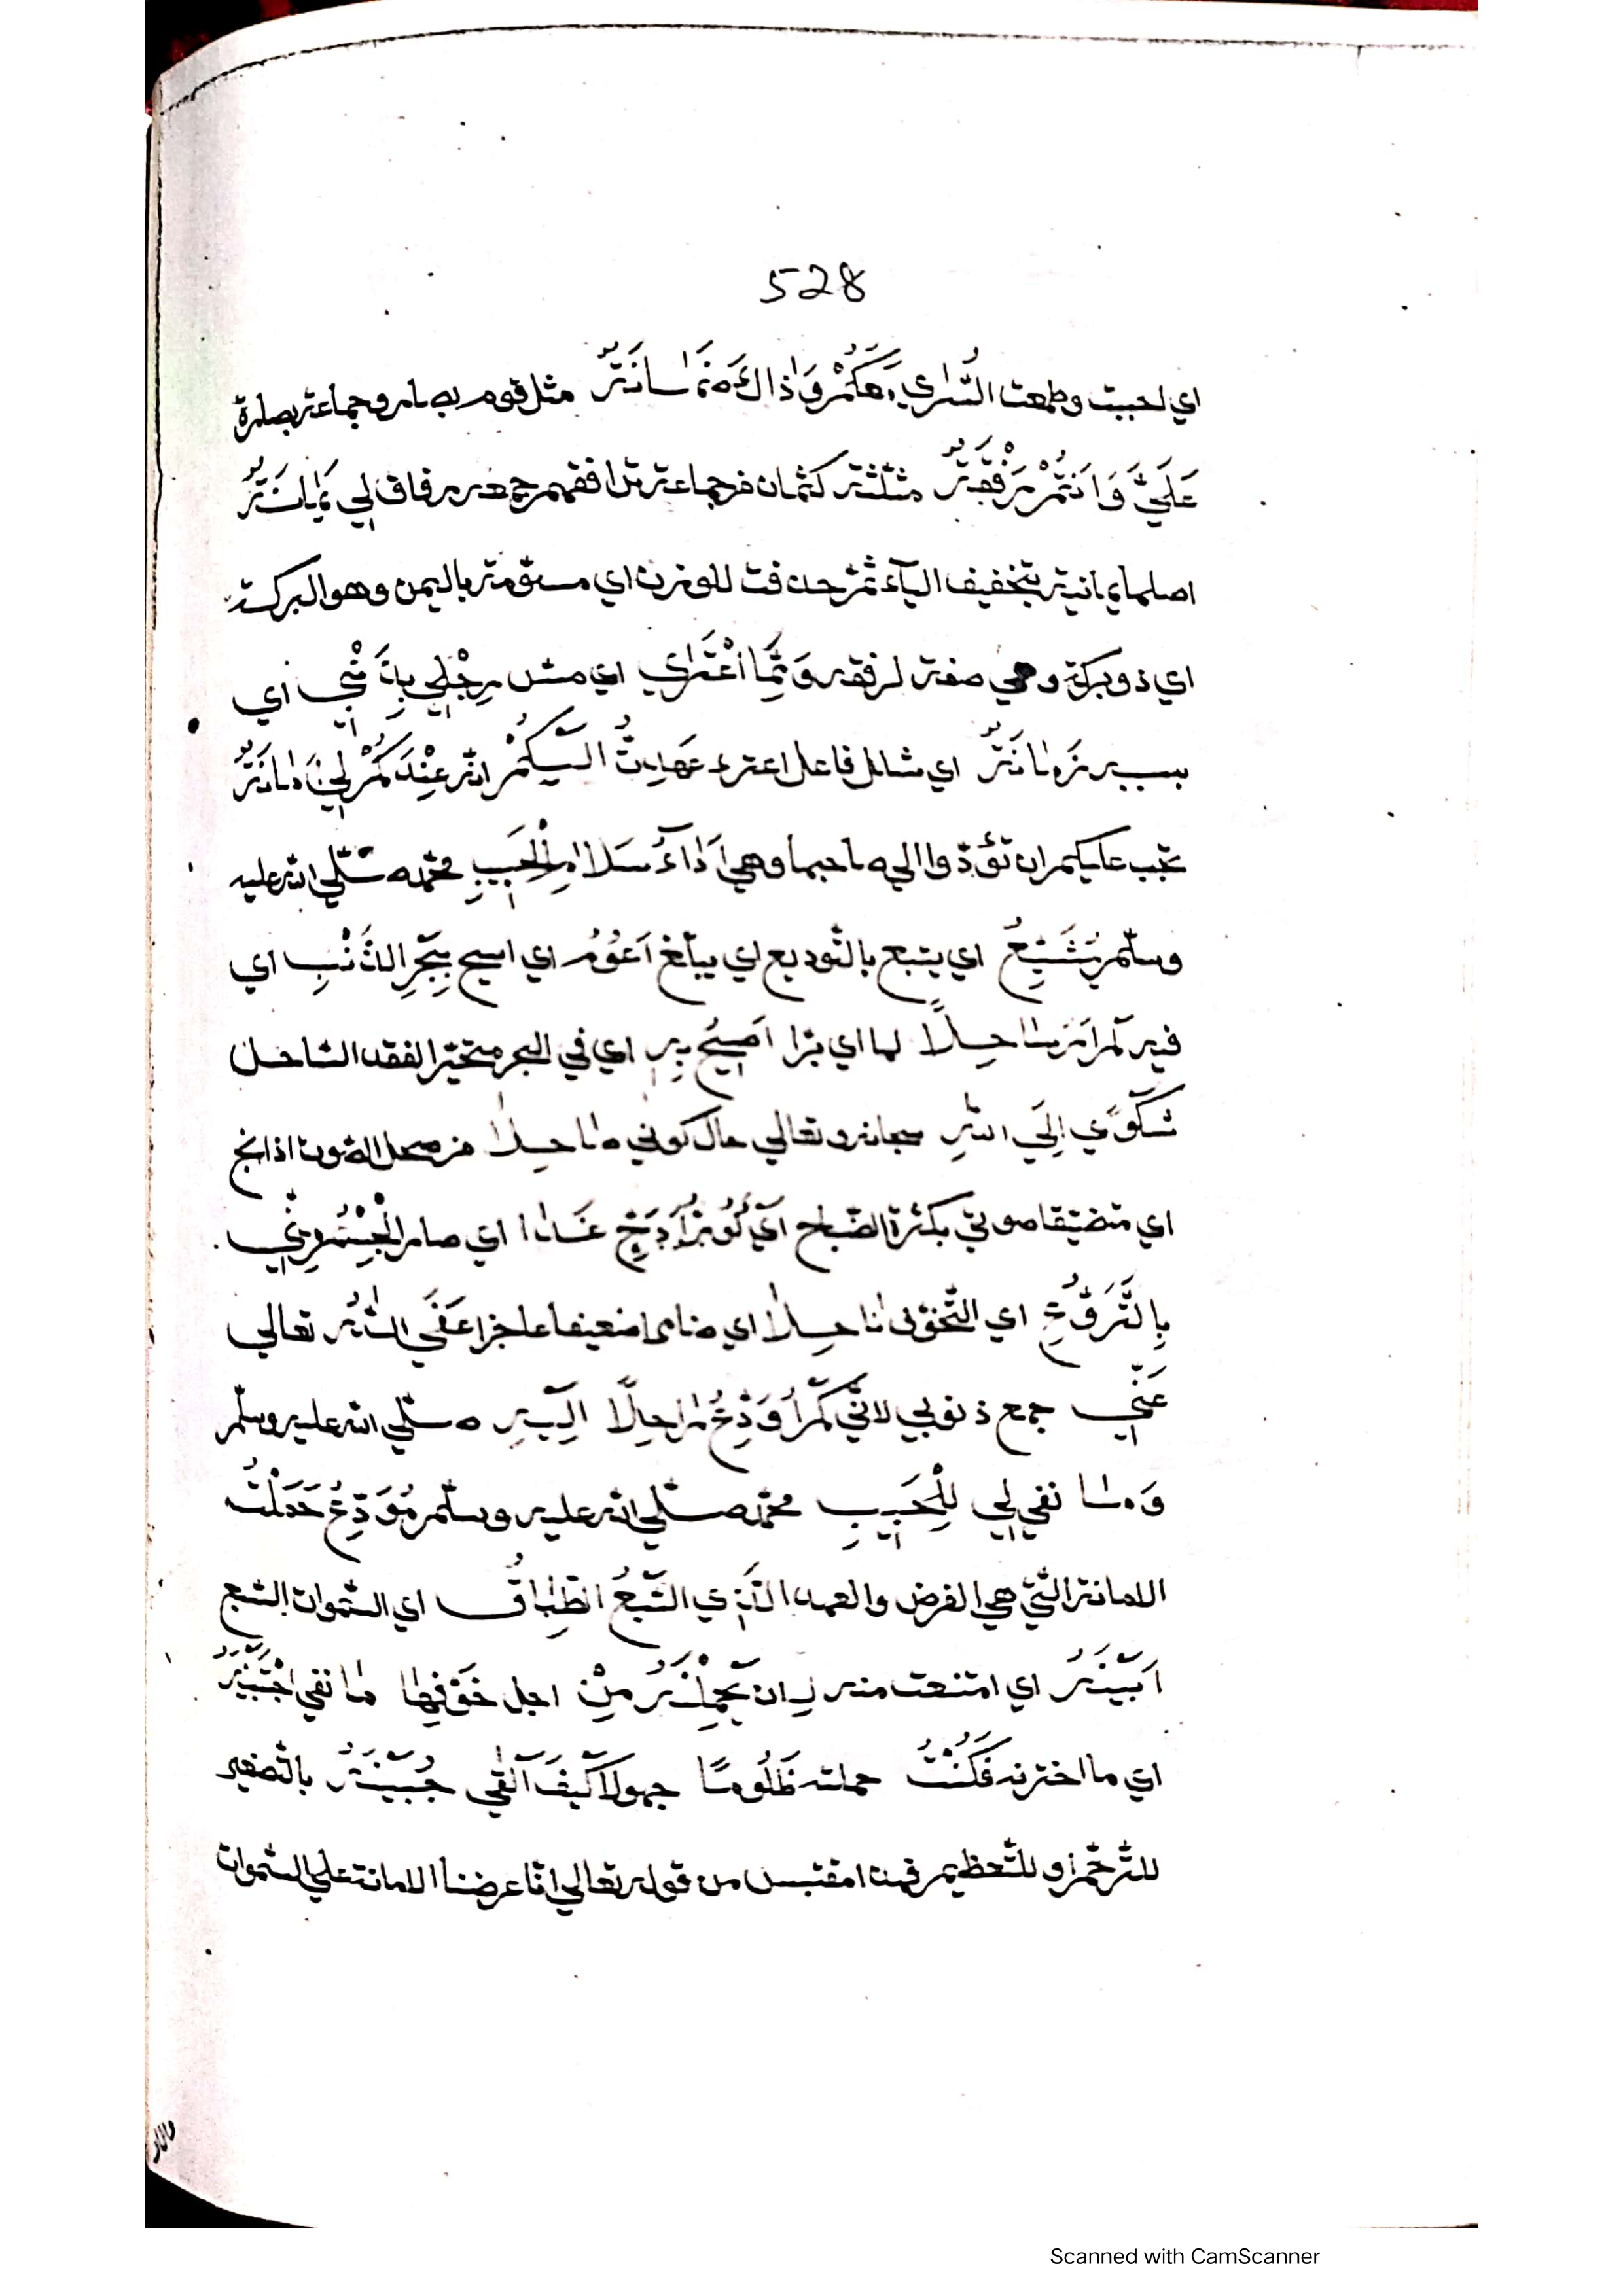 528
اي لحببت وطمعت السُّرٰي مَعَكُمْ وَذَاكَ ضَمَانَةٌ مثل قوم بصار وجماعة بصارة
عَلَيَّ وَاَنْتُمْ رِفْقَةٌ مثلثة كثمان فرجماعة ترافقهم جمعه رفاق لي يَمَانَةٌ
اصلها يمانية بتخفيف اليآء ثمّ حذفت للوزن اي منسوبة باليمن وهو البركة
اي ذو بركة وهي صفة لرفقة وَمِمَّا اعْتَرٰي اي مسّ رِجْلِي بِذَنْبِي اي
بسببه زَمَانَةٌ اي شلل فاعل اعترى عَهِدتُ اليكُمْ انّه عِنْدَكُمْ لِي اَمَانَةٌ
تجب عليكم ان تؤدّوا الي صاحبها وهي اَدَآءُ سَلَامٍ لِلْحَبِيبِ محمّد صلّي الله عليه
وسلّم يُشَيَّعُ اي يتبع بالتّوديع اي يبلّغ اَعُوْمُ اي اسبح بِبَحْرِ الذَّنْبِ اي
فيه لَمْ اَرَ سَاحِلًا لها اي برّا اَصِيْحُ بِهِ اي في البحر متحيّرا لفقد السّاحل
شَكْوٰي اِلَي اللهِ سبحانه وتعالي حال كوني صَاحِلًا من صحل الصّوت اذا بحّ
اي متضيّقا صوتي بكثرة الصّياح
بِالتَّرَوُّحِ نَاحِلًا اي ضامرا ضعيفا عاجزا عَفَي اللهُ تعالي
عَنِّي جمع ذنوبي لانّي لَمْ اُوَدِّعْ رَاحِلًا اِلَيْهِ صلّي الله عليه وسلّم
وَمَا نفي لِي لِلْحَبِيبِ محمّد صلّي الله عليه وسلّم مُوَدِّعُ حَمَلْتُ
الامانة الّتي هي الفرض والعهد الَّذِي السَّبْعُ الطِّبَاقُ اي السّموات السّبع
اَبَيْنَهُ اي امتنعت منه ان يَحْمِلْنَهُ مِنْ اجل خَوْفِهَا مَا نفي اجْتَبَيْنَهُ
اي ما اخترنه فَكُنْتُ حملته ظَلُومًا جهولا كَيْفَ اَلْقٰي جُبَيْنَهُ بالتّصغير
للتّرحّم او للتّعظيم فهذا مقتبس من قوله تعالي انّا عرضنا الامانة علي السّموات
Scanned with CamScanner